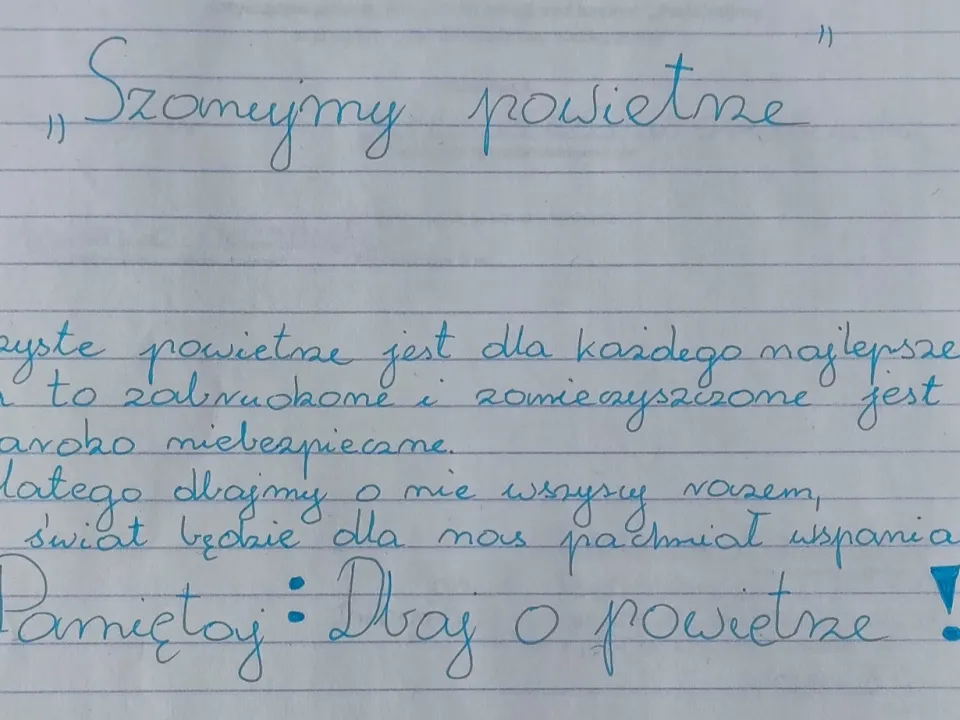 „Szanujmy powietrze"
zyste powietrze jest dla każdego najlepsze
a to zabrudzone i zanieczyszczone jest
ardzo niebezpieczne.
latego dbajmy o nie wszyscy razem,
świat będzie dla nas pachniał wspania
Pamiętaj: Dbaj o powietrze!